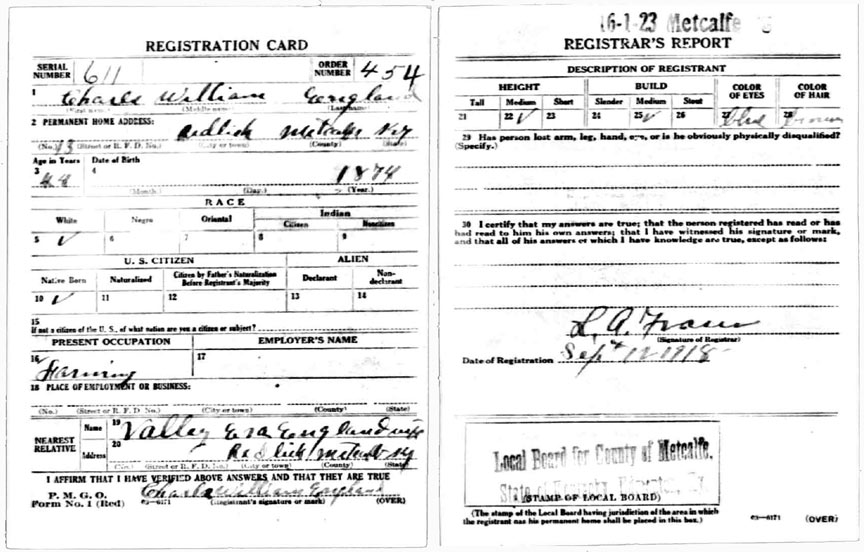 REGISTRATION CARD
SERIAL NUMBER 611
ORDER NUMBER 454
1 Charles William England
(First name) (Middle name) (Last name)
2 PERMANENT HOME ADDRESS:
Redlick Metcalfe Ky
(No.) (Street or R. F. D. No.) (City or town) (County) (State)
Age in Years Date of Birth
3 4
1874
(Month.) (Day.) (Year.)
RACE
White Negro Oriental Indian
Citizen Noncitizen
5 ✓ 6 7 8 9
U. S. CITIZEN ALIEN
Native Born Naturalized Citizen by Father's Naturalization Before Registrant's Majority Declarant Non-declarant
10 ✓ 11 12 13 14
15
If not a citizen of the U. S., of what nation are you a citizen or subject?
PRESENT OCCUPATION EMPLOYER'S NAME
16 Farming 17
18 PLACE OF EMPLOYMENT OR BUSINESS:
(No.) (Street or R. F. D. No.) (City or town) (County) (State)
NEAREST RELATIVE
Name 19 Valley Era England wife
Address 20 Redlick Metcalfe Ky
(No.) (Street or R. F. D. No.) (City or town) (County) (State)
I AFFIRM THAT I HAVE VERIFIED ABOVE ANSWERS AND THAT THEY ARE TRUE
P. M. G. O.
Form No. 1 (Red)
Charles William England
03—6171 (Registrant's signature or mark) (OVER)
16-1-23 Metcalfe
REGISTRAR'S REPORT
DESCRIPTION OF REGISTRANT
HEIGHT BUILD COLOR OF EYES COLOR OF HAIR
Tall Medium Short Slender Medium Stout
21 22 ✓ 23 24 25 ✓ 26 27 blue 28 brown
29 Has person lost arm, leg, hand, eye, or is he obviously physically disqualified?
(Specify.)
30 I certify that my answers are true; that the person registered has read or has
had read to him his own answers; that I have witnessed his signature or mark,
and that all of his answers of which I have knowledge are true, except as follows:
L. A.
(Signature of Registrar)
Date of Registration Sept 12 1918
Local Board for County of Metcalfe.
State of Kentucky,
(STAMP OF LOCAL BOARD)
(The stamp of the Local Board having jurisdiction of the area in which
the registrant has his permanent home shall be placed in this box.)
03—6171 (OVER)